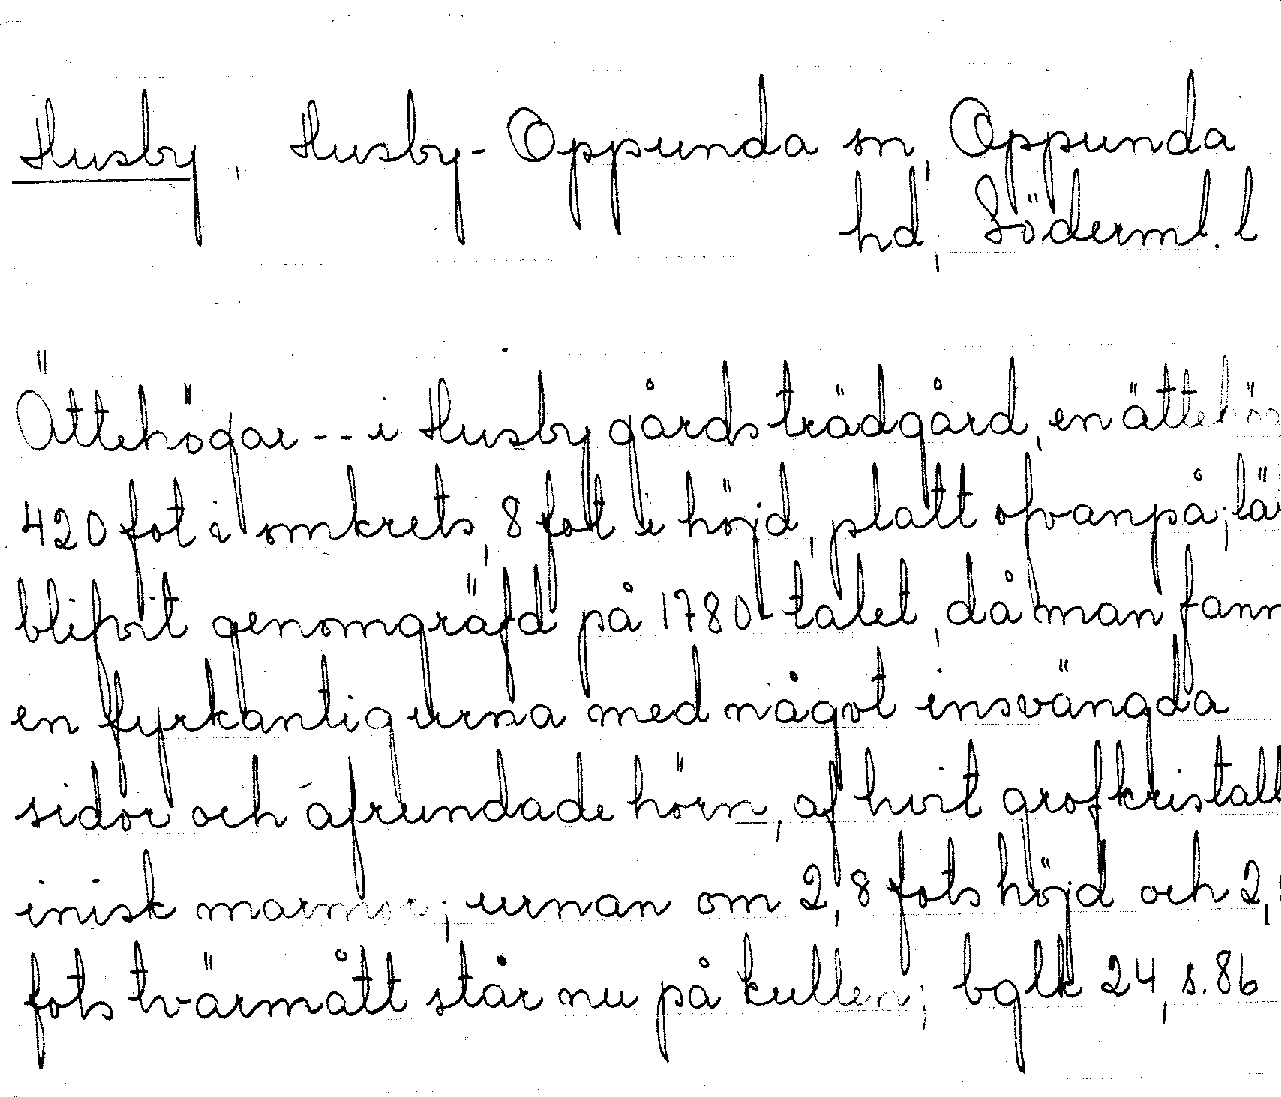 Husby, Husby-Oppunda sn, Oppunda
hd, Söderml. l
Ättehögar -- i Husby gårds trädgård, en ättehög
420 fot i omkrets, 8 fot i höjd, platt ofvanpå; lär
blifvit genomgräfd på 1780-talet, då man fann
en fyrkantig urna med något insvängda
sidor och afrundade hörn, af hvit grofkristall
inisk marmor; urnan om 2,8 fots höjd och 2,
fots tvärmått står nu på kullen; bglk 24, s. 86